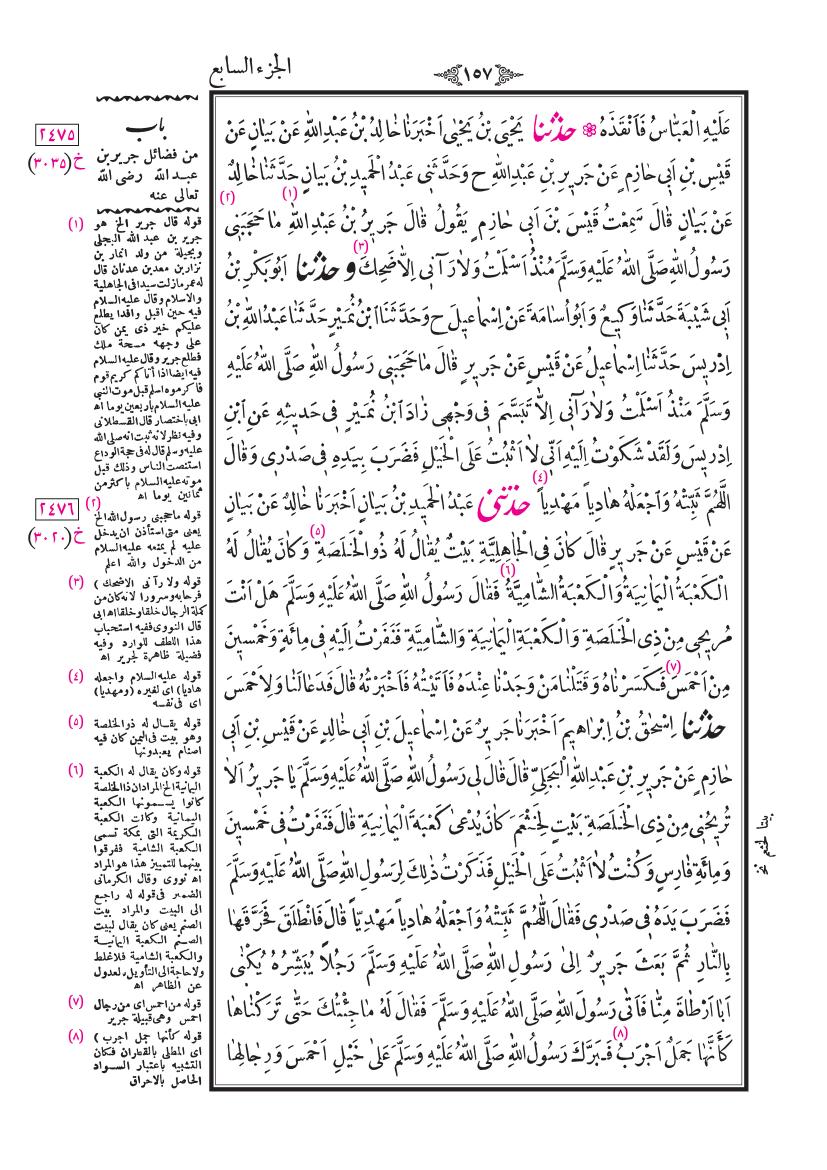 الجزء السابع
١٥٧
عَلَيْهِ الْعَبَّاسُ فَاَنْقَذَهُ ❁ حَدَّثَنَا يَحْيَى بْنُ يَحْيٰى اَخْبَرَنَا خَالِدُ بْنُ عَبْدِاللّٰهِ عَنْ بَيَانٍ عَنْ
قَيْسِ بْنِ اَبِى حَازِمٍ عَنْ جَرِيرِ بْنِ عَبْدِاللّٰهِ ح وَحَدَّثَنِى عَبْدُ الْحَمِيدِ بْنُ بَيَانٍ حَدَّثَنَا خَالِدٌ
عَنْ بَيَانٍ قَالَ سَمِعْتُ قَيْسَ بْنَ اَبِى حَازِمٍ يَقُولُ (١) قَالَ جَرِيرُ بْنُ عَبْدِاللّٰهِ (٢) مَا حَجَبَنِى
رَسُولُ اللّٰهِ صَلَّى اللّٰهُ عَلَيْهِ وَسَلَّمَ مُنْذُ اَسْلَمْتُ وَلَا رَآنِى اِلَّا ضَحِكَ (٣) وحَدَّثَنَا اَبُوبَكْرِ بْنُ
اَبِى شَيْبَةَ حَدَّثَنَا وَكِيعٌ وَاَبُو اُسَامَةَ عَنْ اِسْمَاعِيلَ ح وَحَدَّثَنَا ابْنُ نُمَيْرٍ حَدَّثَنَا عَبْدُاللّٰهِ بْنُ
اِدْرِيسَ حَدَّثَنَا اِسْمَاعِيلُ عَنْ قَيْسٍ عَنْ جَرِيرٍ قَالَ مَا حَجَبَنِى رَسُولُ اللّٰهِ صَلَّى اللّٰهُ عَلَيْهِ
وَسَلَّمَ مُنْذُ اَسْلَمْتُ وَلَا رَآنِى اِلَّا تَبَسَّمَ فِى وَجْهِى زَادَ ابْنُ نُمَيْرٍ فِى حَدِيثِهِ عَنِ ابْنِ
اِدْرِيسَ وَلَقَدْ شَكَوْتُ اِلَيْهِ اَنِّى لَا اَثْبُتُ عَلَى الْخَيْلِ فَضَرَبَ بِيَدِهِ فِى صَدْرِى وَقَالَ
اللّٰهُمَّ ثَبِّتْهُ وَاجْعَلْهُ هَادِياً مَهْدِيّاً (٤) حَدَّثَنِى عَبْدُ الْحَمِيدِ بْنُ بَيَانٍ اَخْبَرَنَا خَالِدٌ عَنْ بَيَانٍ
عَنْ قَيْسٍ عَنْ جَرِيرٍ قَالَ كَانَ فِى الْجَاهِلِيَّةِ بَيْتٌ يُقَالُ لَهُ ذُوالْخَلَصَةِ (٥) وَكَانَ يُقَالُ لَهُ
الْكَعْبَةُ الْيَمَانِيَةُ وَالْكَعْبَةُ الشَّامِيَّةُ (٦) فَقَالَ رَسُولُ اللّٰهِ صَلَّى اللّٰهُ عَلَيْهِ وَسَلَّمَ هَلْ اَنْتَ
مُرِيحِى مِنْ ذِى الْخَلَصَةِ وَالْكَعْبَةِ الْيَمَانِيَةِ وَالشَّامِيَّةِ فَنَفَرْتُ اِلَيْهِ فِى مِائَةٍ وَخَمْسِينَ
مِنْ اَحْمَسَ (٧) فَكَسَرْنَاهُ وَقَتَلْنَا مَنْ وَجَدْنَا عِنْدَهُ فَاَتَيْتُهُ فَاَخْبَرْتُهُ قَالَ فَدَعَا لَنَا وَلِاَحْمَسَ
حَدَّثَنَا اِسْحٰقُ بْنُ اِبْرَاهِيمَ اَخْبَرَنَا جَرِيرٌ عَنْ اِسْمَاعِيلَ بْنِ اَبِى خَالِدٍ عَنْ قَيْسِ بْنِ اَبِى
حَازِمٍ عَنْ جَرِيرِ بْنِ عَبْدِاللّٰهِ الْبَجَلِىِّ قَالَ قَالَ لِى رَسُولُ اللّٰهِ صَلَّى اللّٰهُ عَلَيْهِ وَسَلَّمَ يَا جَرِيرُ اَلَا
تُرِيحُنِى مِنْ ذِى الْخَلَصَةِ بَيْتٍ لِخَثْعَمَ كَانَ يُدْعَى كَعْبَةَ الْيَمَانِيَةِ قَالَ فَنَفَرْتُ فِى خَمْسِينَ
وَمِائَةِ فَارِسٍ وَكُنْتُ لَا اَثْبُتُ عَلَى الْخَيْلِ فَذَكَرْتُ ذٰلِكَ لِرَسُولِ اللّٰهِ صَلَّى اللّٰهُ عَلَيْهِ وَسَلَّمَ
فَضَرَبَ يَدَهُ فِى صَدْرِى فَقَالَ اللّٰهُمَّ ثَبِّتْهُ وَاجْعَلْهُ هَادِياً مَهْدِيّاً قَالَ فَانْطَلَقَ فَحَرَّقَهَا
بِالنَّارِ ثُمَّ بَعَثَ جَرِيرٌ اِلَى رَسُولِ اللّٰهِ صَلَّى اللّٰهُ عَلَيْهِ وَسَلَّمَ رَجُلاً يُبَشِّرُهُ يُكْنٰى
اَبَا اَرْطَاةَ مِنَّا فَاَتٰى رَسُولَ اللّٰهِ صَلَّى اللّٰهُ عَلَيْهِ وَسَلَّمَ فَقَالَ لَهُ مَا جِئْتُكَ حَتّٰى تَرَكْنَاهَا
كَاَنَّهَا جَمَلٌ اَجْرَبُ (٨) فَبَرَّكَ رَسُولُ اللّٰهِ صَلَّى اللّٰهُ عَلَيْهِ وَسَلَّمَ عَلٰى خَيْلِ اَحْمَسَ وَرِجَالِهَا
باب
من فضائل جرير بن
عبد الله رضى الله
تعالى عنه
٢٤٧٥
خ (٣٠٣٥)
(١) قوله قال جرير الخ هو
جرير بن عبد الله البجلى
وبجيلة من ولد انمار بن
نزار بن معد بن عدنان قال
له عمر مازلت سيدا فى الجاهلية
والاسلام وقال عليه السلام
فيه حين اقبل وافدا يطلع
عليكم خير ذى يمن كان
على وجهه مسحة ملك
فطلع جرير وقال عليه السلام
فيه ايضا اذا أتاكم كريم قوم
فاكرموه اسلم قبل موت النبى
عليه السلام باربعين يوما اه
ابى باختصار قال القسطلانى
وفيه نظر لانه ثبت انه صلى الله
عليه وسلم قال له فى حجة الوداع
استنصت الناس وذلك قبل
موته عليه السلام باكثر من
ثمانين يوما اه
٢٤٧٦
خ (٣٠٢٠)
(٢) قوله ما حجبنى رسول الله الخ
يعنى متى استأذن ان يدخل
عليه لم يمنعه عليه السلام
من الدخول والله اعلم
(٣) قوله ولا رآنى الا ضحك )
فرحا به وسرورا لانه كان من
كملة الرجال خلقا وخلقا اه ابى
قال النووى ففيه استحباب
هذا اللطف للوارد وفيه
فضيلة ظاهرة لجرير اه
(٤) قوله عليه السلام واجعله
هاديا) اى لغيره (ومهديا)
اى فى نفسه
(٥) قوله يقال له ذو الخلصة
وهو بيت فى اليمن كان فيه
اصنام يعبدونها
(٦) قوله وكان يقال له الكعبة
اليمانية الخ المراد ان ذا الخلصة
كانوا يسمونها الكعبة
اليمانية وكانت الكعبة
الكريمة التى بمكة تسمى
الكعبة الشامية ففرقوا
بينهما للتمييز هذا هو المراد
اه نووى وقال الكرمانى
الضمير فى قوله له راجع
الى البيت والمراد بيت
الصنم يعنى كان يقال لبيت
الصنم الكعبة اليمانية
والكعبة الشامية فلا غلط
ولا حاجة الى التأويل لعدول
عن الظاهر اه
(٧) قوله من احمس اى من رجال
احمس وهى قبيلة جرير
(٨) قوله كأنها جمل اجرب )
اى المطلى بالقطران فكان
التشبيه باعتبار السواد
الحاصل بالاحراق
بيتا لخثعم نخ